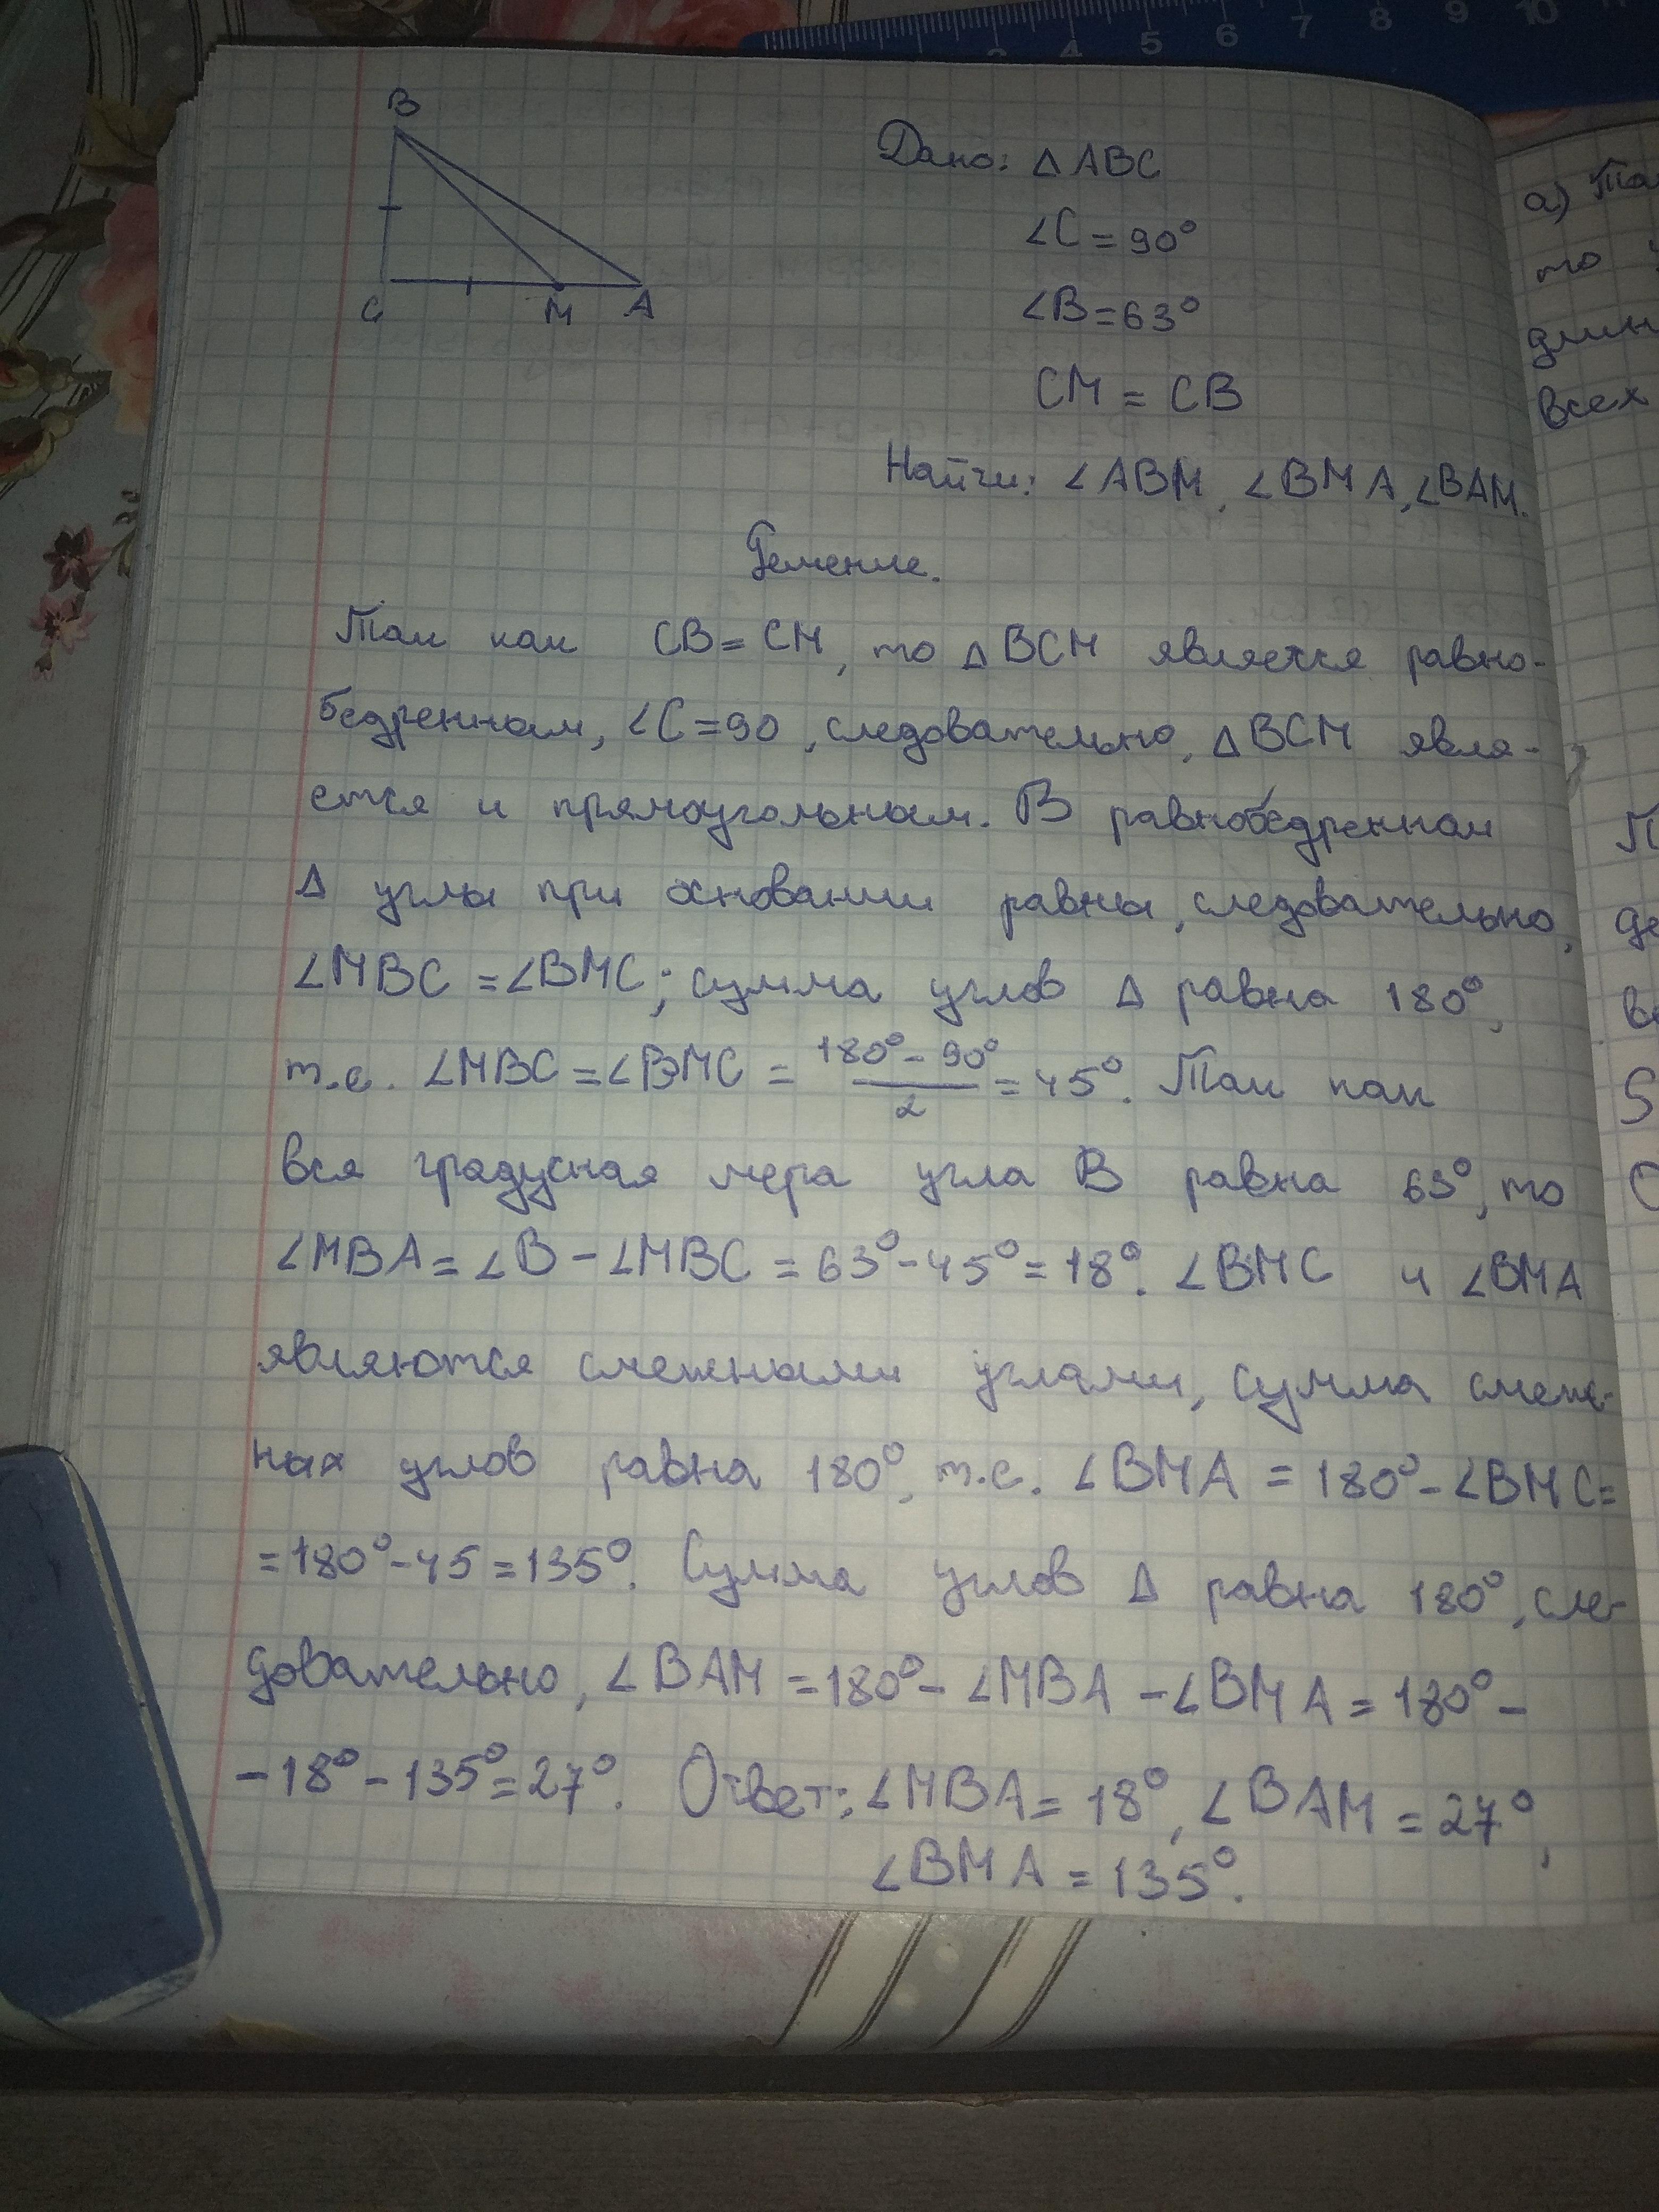 3 4 5 6 7 8 9 10
B
C M A
Дано: Δ ABC
∠C = 90°
∠B = 63°
CM = CB
Найти: ∠ABM, ∠BMA, ∠BAM.
Решение.
Так как CB = CM, то Δ BCM является равно-
бедренным, ∠C = 90, следовательно, Δ BCM явля-
ется и прямоугольным. В равнобедренном
Δ углы при основании равны, следовательно,
∠MBC = ∠BMC; сумма углов Δ равна 180°,
т.е. ∠MBC = ∠BMC = (180° - 90°)/2 = 45°. Так как
вся градусная мера угла B равна 63°, то
∠MBA = ∠B - ∠MBC = 63° - 45° = 18°. ∠BMC и ∠BMA
являются смежными углами, сумма смеж-
ных углов равна 180°, т.е. ∠BMA = 180° - ∠BMC =
= 180° - 45 = 135°. Сумма углов Δ равна 180°, сле-
довательно, ∠BAM = 180° - ∠MBA - ∠BMA = 180° -
- 18° - 135° = 27°. Ответ: ∠MBA = 18°, ∠BAM = 27°,
∠BMA = 135°.
а)
то
длин
всех